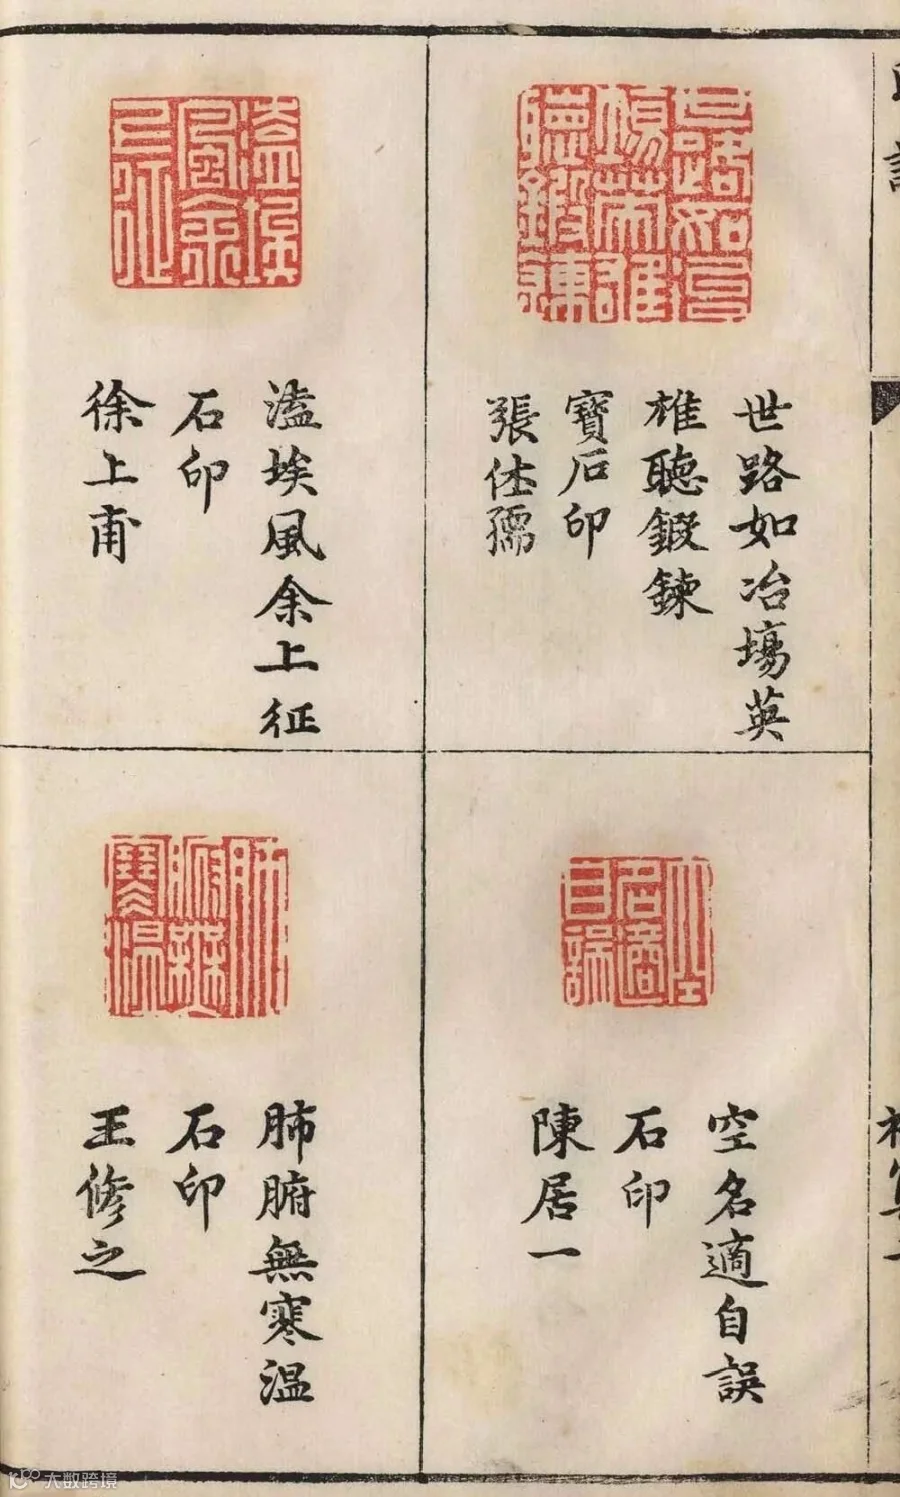 世路如冶場英
雄聽鍛鍊
寶石印
張㑅孺
溘埃風余上征
石印
徐上甫
空名適自誤
石印
陳居一
肺腑無寒溫
石印
王修之
大数跨境